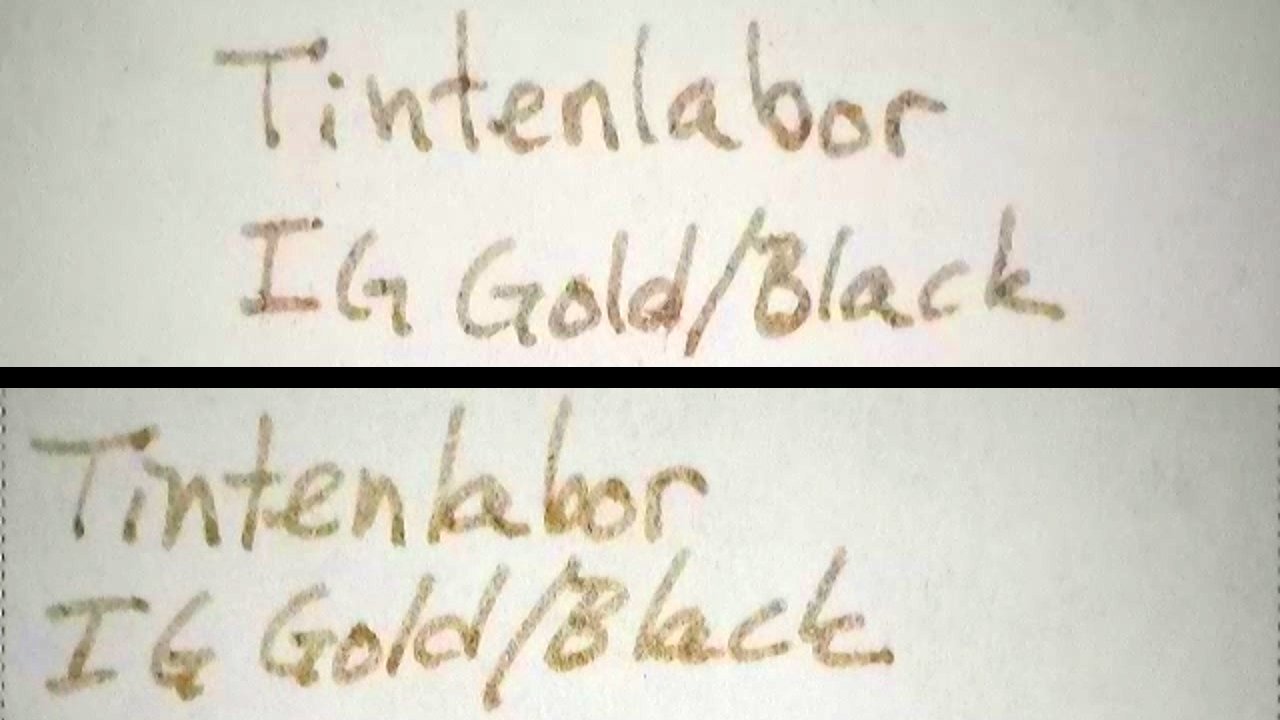 Tintenlabor
IG Gold/Black
Tintenlabor
IG Gold/Black